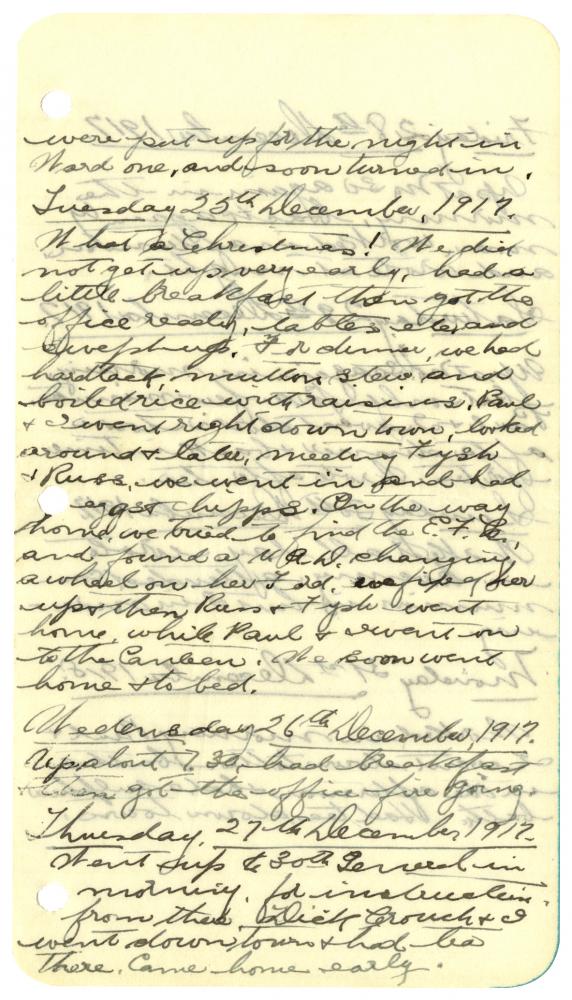 were put up for the night in
Ward one, and soon turned in.
Tuesday 25th December, 1917.
What a Christmas! We did
not get up very early, had a
little breakfast then got the
office ready, tables etc, and
swept up. For dinner, we had
hardtack, mutton stew and
boiled rice with raisins. Paul
& I went right down town, looked
around & later, meeting Fysh
& Russ, we went in and had
eggs & chipps. On the way
home, we tried to find the E.F.C.,
and found a W.A.D. changing
a wheel on her Ford. we fixed her
up & then Russ & Fysh went
home, while Paul & I went on
to the Canteen. We soon went
home & to bed.
Wedensday 26th December, 1917.
Up about 7.30, had breakfast
& then got the office fire going.
Thursday, 27th December 1917.
Went up to 30th General in
morning, for instruction
from there. Dick Crouch & I
went down town & had tea
there. Came home early.